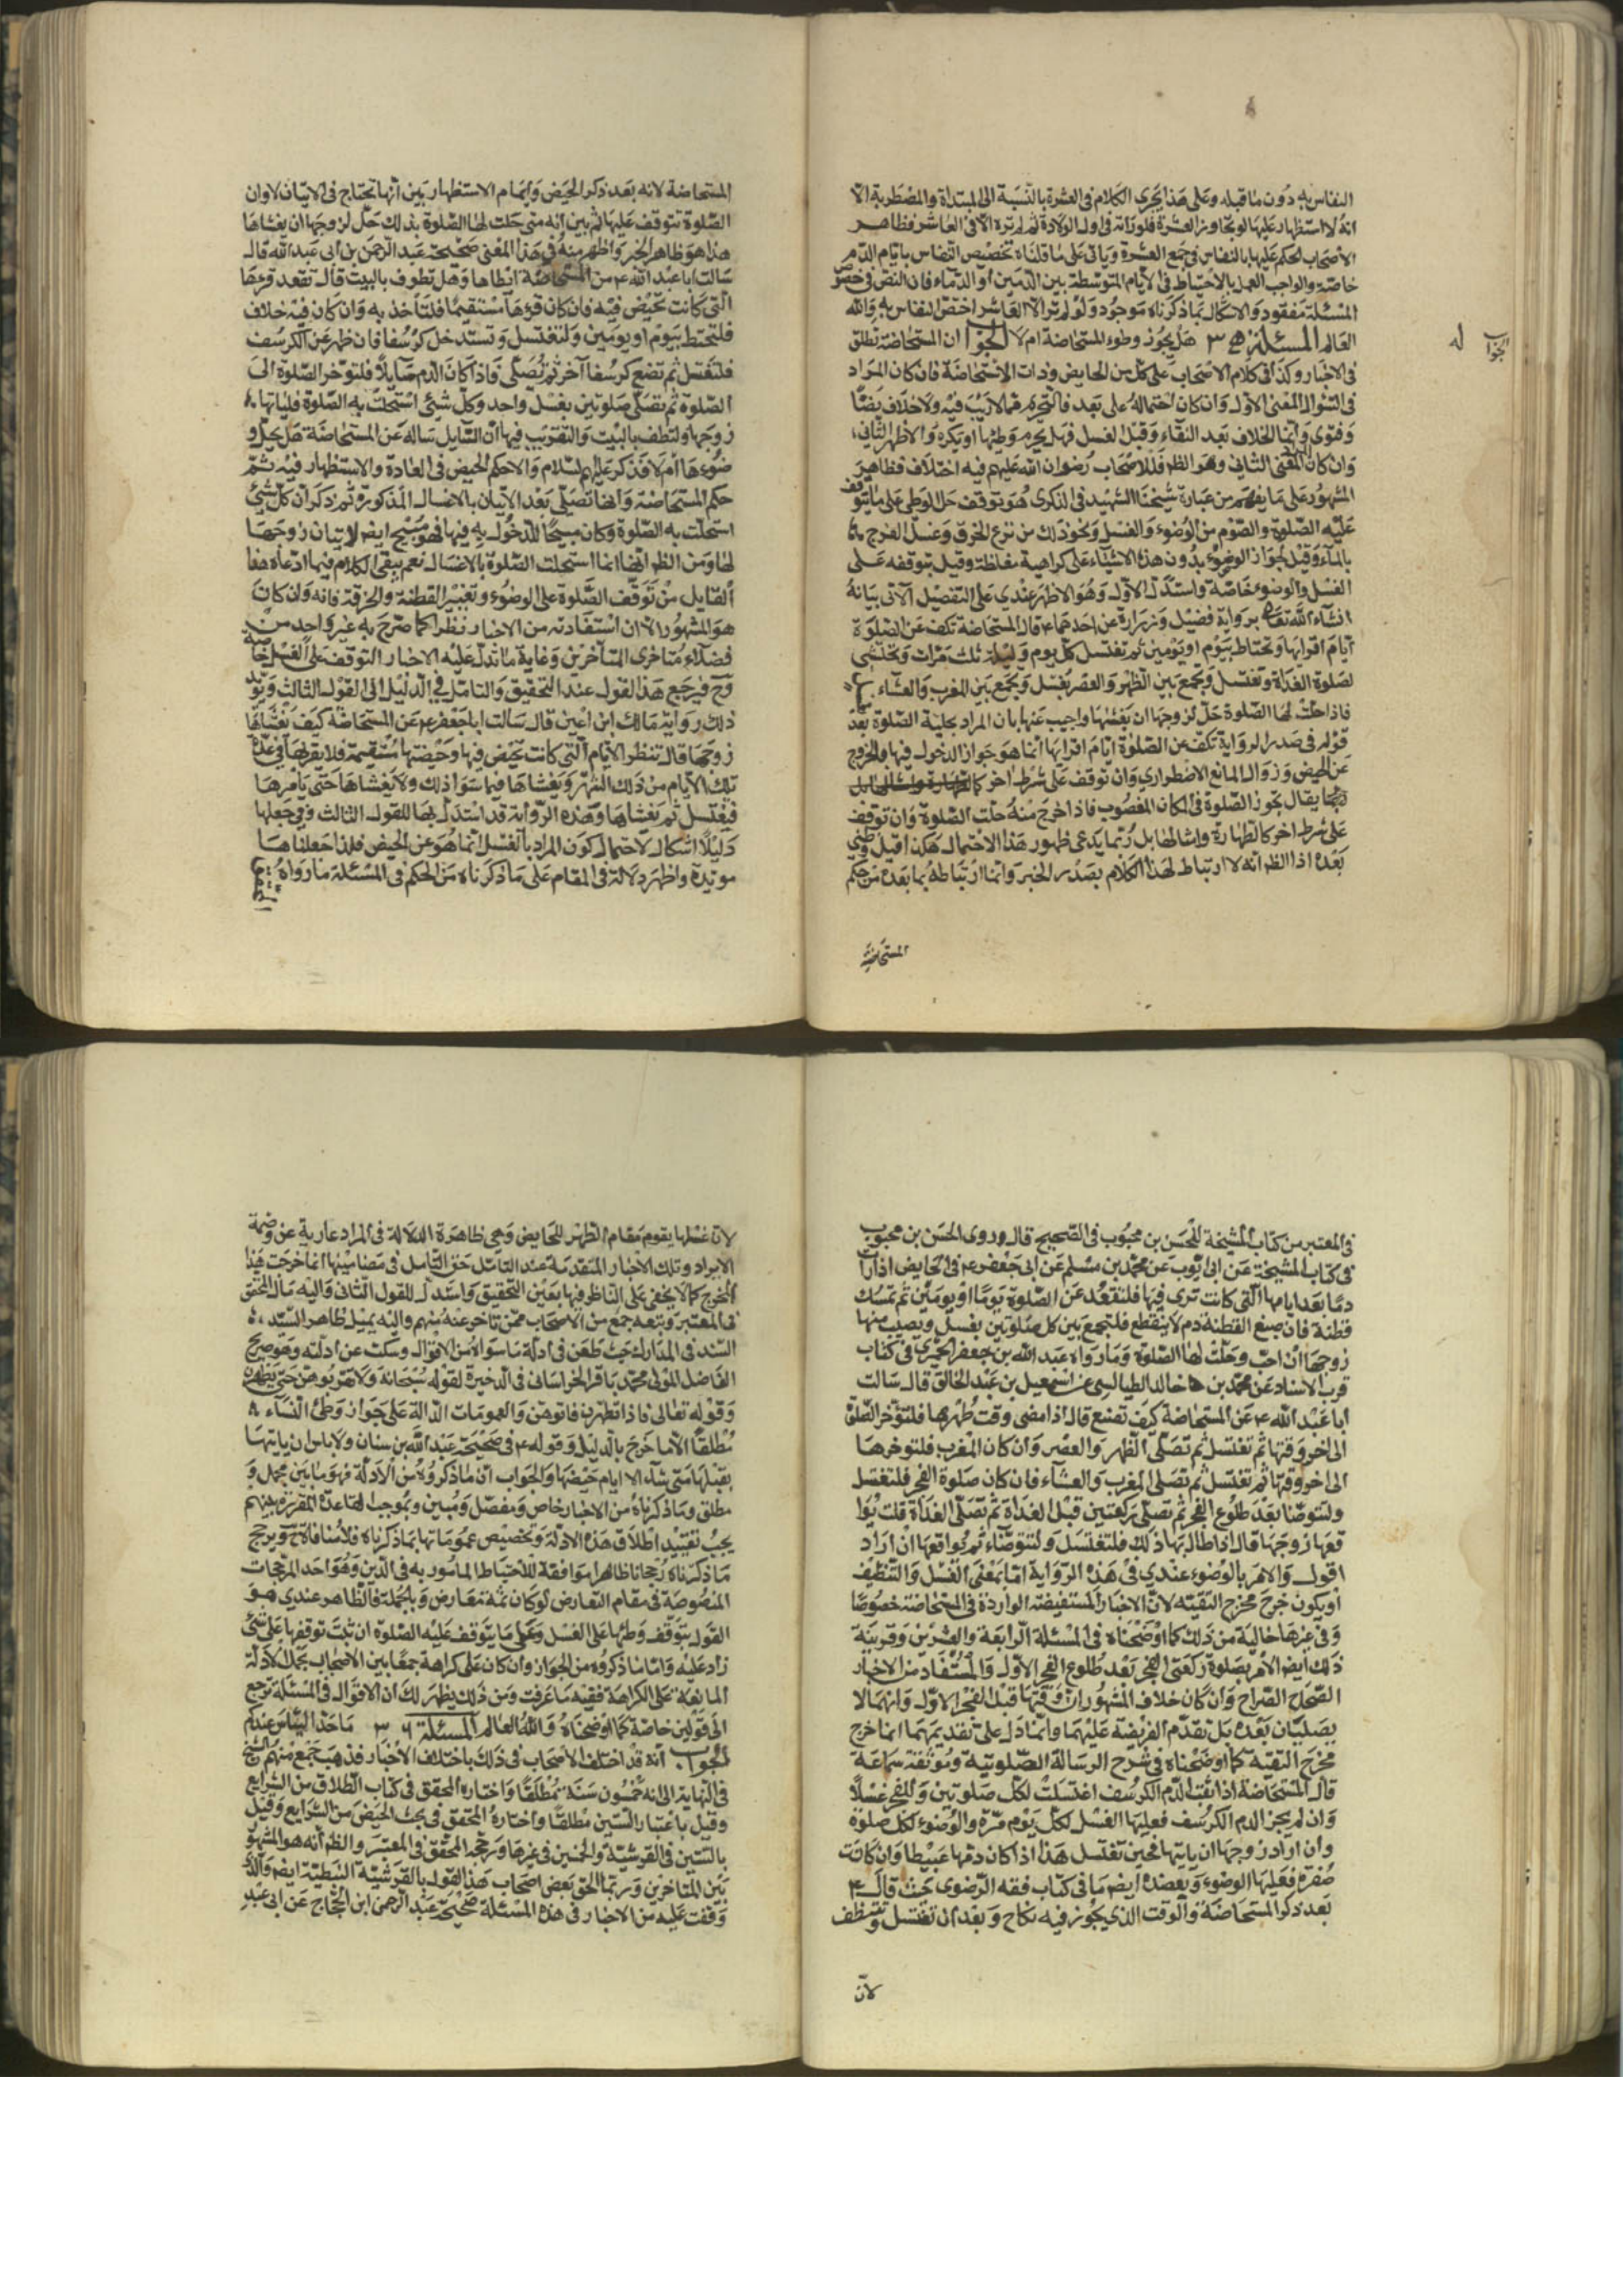 النفاس به دون ما قبله وعلى هذا يجرى الكلام فى العشرة بالنسبة الى المبتدأة والمضطربة الا
انه لا استظهار عليها لو تجاوز العشرة فلو رأته فى اول الولادة ثم لم تره الا فى العاشر فظاهر
الاصحاب الحكم عليها بالنفاس فى جميع العشرة ويأتى على ما قلناه تخصيص النفاس بايام الدم
خاصة والواجب العمل بالاحتياط فى الايام المتوسطة بين الدمين أو الدماء فان النص فى خصوص
المسئلة مفقود والاشكال بما ذكرناه موجود ولو لم تر الا العاشر اختص النفاس به والله
العالم المسئلة ٣٥ هل يجوز وطوء المستحاضة ام لا الجواب ان المستحاضة تطلق
فى الاخبار وكذا فى كلام الاصحاب على كل من الحايض وذات الاستحاضة فان كان المراد
فى السئوال المعنى الاول وان كان احتماله على بعد فالتحريم مما لا ريب فيه ولا خلاف نصا
وفتوى وانما الخلاف بعد النقاء وقبل الغسل فهل يحرم وطئها او يكره والاظهر الثانى
وان كان المعنى الثانى وهو الظ فللاصحاب رضوان الله عليهم فيه اختلاف فظاهر
المشهور على ما يفهم من عبارة شيخنا الشهيد فى الذكرى هو توقف حل الوطى على ما يتوقف
عليه الصلوة والصوم من الوضوء والغسل ونحو ذلك من نزع الخرق وغسل الفرج
بالماء وقيل بجواز الوضوء بدون هذه الاشياء على كراهية مغلظة وقيل بتوقفه على
الغسل والوضوء خاصة واستدل الاول وهو الاظهر عندى على التفصيل الآتى بيانه
انشاء الله تعالى برواية فضيل وزرارة عن احدهما ع قال المستحاضة تكف عن الصلوة
ايام اقرائها وتحتاط بيوم او يومين ثم تغتسل كل يوم وليلة ثلث مرات وتحتشى
لصلوة الغداة وتغتسل وتجمع بين الظهر والعصر بغسل وتجمع بين المغرب والعشاء
فاذا حلت لها الصلوة حل لزوجها ان يغشيها واجيب عنها بان المراد بحلية الصلوة بعد
قوله فى صدر الرواية تكف عن الصلوة ايام اقرائها انما هو جواز الدخول فيها والخروج
عن الحيض وزوال المانع الاضطرارى وان توقف على شرط اخر
كما يقال يجوز الصلوة فى المكان المغصوب فاذا خرج منه حلت الصلوة وان توقف
على شرط اخر كالطهارة وامثالها بل ربما يدعى ظهور هذا الاحتمال هكذا قيل وظنى
بعده اذا الظ انه لا ارتباط لهذا الكلام بصدر الخبر وانما ارتباطه بما بعده من حكم
المستحاضة
الجواب له
المستحاضة لانه بعد ذكر الحيض وايام الاستظهار بين انها تحتاج فى الاتيان لا وان
الصلوة تتوقف عليها ثم بين انه متى حلت لها الصلوة بذلك حل لزوجها ان يغشاها
هذا هو ظاهر الخبر واظهر منه فى هذا المعنى صحيحة عبد الرحمن بن أبى عبد الله قال
سالت ابا عبد الله ع من المستحاضة ايطاها وهل تطوف بالبيت قال تقعد قرءها
التى كانت تحيض فيه فان كان قرؤها مستقيما فلتأخذ به وان كان فيه خلاف
فلتحتط بيوم او يومين ولتغتسل وتستدخل كرسفا فان ظهر عن الكرسف
فلتغتسل ثم تضع كرسفا آخر ثم تصلى فاذا كان الدم سايلا فلتوخر الصلوة الى
الصلوة ثم تصلى صلوتين بغسل واحد وكل شئ استحلت به الصلوة فلياتها
زوجها ولتطف بالبيت والتقريب فيها أن السايل ساله عن المستحاضة هل يحل و
ضوءها أم لا فذكر عليه السلام والاحكم الحيض فى العادة والاستظهار فيه ثم
حكم المستحاضة وانها تصلى بعد الاتيان بالاغسال المذكورة ثم ذكر أن كل شئ
استحلت به الصلوة وكان مبيحا للدخول به فيها فهو مبيح ايضا لاتيان زوجها
لها ومن الظ انها انما استحلت الصلوة بالاغسال نعم يبقى الكلام فيما ادعاه هذا
القايل من توقف الصلوة على الوضوء وتغيير القطنة والخرقة فانه وان كان
هو المشهور الا ان استفادته من الاخبار نظرا كما صرح به غير واحد من
فضلاء متاخرى المتاخرين وغاية ما تدل عليه الاخبار التوقف على الغسل خاصة
وح فيرجع هذا القول عند التحقيق والتامل فى الدليل الى القول الثالث ويؤيد
ذلك رواية مالك ابن اعين قال سالت ابا جعفر ع عن المستحاضة كيف يغشاها
زوجها قال تنظر الايام التى كانت تحيض فيها وحيضتها مستقيمة فلا يقربها فى عدة
تلك الايام من ذلك الشهر ويغشاها فيما سوا ذلك ولا يغشاها حتى يامرها
فتغتسل ثم يغشاها وهذه الرواية قد استدل بها للقول الثالث وفى جعلها
دليلا اشكال لاحتمال كون المراد بالغسل انما هو عن الحيض فلذا جعلناها
مؤيدة واظهر دلالة فى المقام على ما ذكرناه من الحكم فى المسئلة ما رواه
فى المعتبر من كتاب المشيخة للحسن بن محبوب فى الصحيح قال وروى الحسن بن محبوب
فى كتاب المشيخة عن ابى ايوب عن محمد بن مسلم عن ابى جعفر ع فى الحايض اذا رأت
دما بعد ايامها التى كانت ترى فيها فلتقعد عن الصلوة يوما او يومين ثم تمسك
قطنة فان صبغ القطنة دم لا ينقطع فلتجمع بين كل صلوتين بغسل ويصيب منها
زوجها ان احب وحلت لها الصلوة وما رواه عبد الله بن جعفر الحميرى فى كتاب
قرب الاسناد عن محمد بن خالد الطيالسى عن اسمعيل بن عبد الخالق قال سالت
ابا عبد الله ع عن المستحاضة كيف تصنع قال اذا مضى وقت طهرها فلتؤخر الظهر
الى اخر وقتها ثم تغتسل ثم تصلى الظهر والعصر وان كان المغرب فلتوخرها
الى اخر وقتها ثم تغتسل ثم تصلى المغرب والعشاء فان كان صلوة الفجر فلتغتسل
ولتتوضا بعد طلوع الفجر ثم تصلى ركعتين قبل الغداة ثم تصلى الغداة قلت يوا
قعها زوجها قال اذا طال بها ذلك فلتغتسل ولتتوضاء ثم يواقعها ان اراد
اقول والامر بالوضوء عندى فى هذه الرواية اما بمعنى الغسل والتنظيف
أو يكون خرج مخرج التقية لان الاخبار المستفيضة الواردة فى المستحاضة خصوصا
وفى غيرها خالية من ذلك كما اوضحناه فى المسئلة الرابعة والعشرين وقرينة
ذلك ايضا الامر بصلوة ركعتى الفجر بعد طلوع الفجر الاول والمستفاد من الاخبار
الصحاح الصراح وان كان خلاف المشهور ان وقتها قبل الفجر الاول وانهما لا
يصليان بعده بل تقدم الفريضة عليهما وانما دل على تقديمهما انما خرج
مخرج التقية كما اوضحناه فى شرح الرسالة الصلوتية وموثقة سماعة
قال المستحاضة اذا ثقب الدم الكرسف اغتسلت لكل صلوتين وللفجر غسلا
وان لم يجز الدم الكرسف فعليها الغسل لكل يوم مرة والوضوء لكل صلوة
وان اراد زوجها ان ياتيها فحين تغتسل هذا اذا كان دمها عبيطا وان كانت
صفرة فعليها الوضوء ويعضده ايضا ما فى كتاب فقه الرضوى حيث قال ع
بعد ذكر المستحاضة والوقت الذى يجوز فيه نكاح وبعد ان تغتسل وتتنظف
لان
لان غسلها يقوم مقام الطهر للحايض وهى ظاهرة الدلالة فى المراد عارية عن وصمة
الايراد وتلك الاخبار المتقدمة عند التامل حق التأمل فى مضامينها انما خرجت هذا
المخرج كما لا يخفى على الناظر فيها بعين التحقيق واستدل للقول الثانى واليه مال المحقق
فى المعتبر وتبعه جمع من الاصحاب ممن تاخر عنه منهم واليه يميل ظاهر السيد
السند فى المدارك حيث طعن فى ادلة ما سواه من الاقوال وسكت عن ادلته وهو صريح
الفاضل المولى محمد باقر الخراسانى فى الذخيرة لقوله سبحانه ولا تقربوهن حتى يطهرن
وقوله تعالى فاذا تطهرن فاتوهن والعمومات الدالة على جواز وطئ النساء
مطلقا الا ما خرج بالدليل وقوله ع فى صحيحة عبد الله بن سنان ولا باس ان ياتيها
بعلها متى شاء الا ايام حيضها والجواب ان ما ذكروه من الادلة فهو ما بين مجمل و
مطلق وما ذكرناه من الاخبار خاص ومفصل ومبين وبموجب القاعدة المقررة بينهم
يجب تقييد اطلاق هذه الادلة وتخصيص عموماتها بما ذكرناه فلا منافاة ح ويرجح
ما ذكرناه رجحانا ظاهرا موافقة للاحتياط المامور به فى الدين وهو احد المرجحات
المنصوصة فى مقام التعارض لو كان ثمة تعارض وبالجملة فالظاهر عندى هو
القول بتوقف وطئها على الغسل وعلى ما يتوقف عليه الصلوة ان ثبت توقفها على شئ
زاد عليه واما ما ذكروه من الجواز وان كان على كراهة جمعا بين الاصحاب بحمل الادلة
المانعة على الكراهة ففيه ما عرفت ومن ذلك يظهر لك ان الاقوال فى المسئلة ترجع
الى قولين خاصة كما اوضحناه والله العالم المسئلة ٣٦ ما حد الياس عندكم
الجواب أنه قد اختلف الاصحاب فى ذلك باختلاف الاخبار فذهب جمع منهم الشيخ
فى النهاية الى انه خمسون سنة مطلقا واختاره المحقق فى كتاب الطلاق من الشرايع
وقيل باعتبار الستين مطلقا واختاره المحقق فى بحث الحيض من الشرايع وقيل
بالستين فى القرشية والخمسين فى غيرها ورجحه المحقق فى المعتبر والظ أنه هو المشهور
بين المتاخرين وربما الحق بعض اصحاب هذا القول بالقرشية النبطية ايضا والذى
وقفت عليه من الاخبار فى هذه المسئلة صحيحة عبد الرحمن ابن الحجاج عن ابى عبد